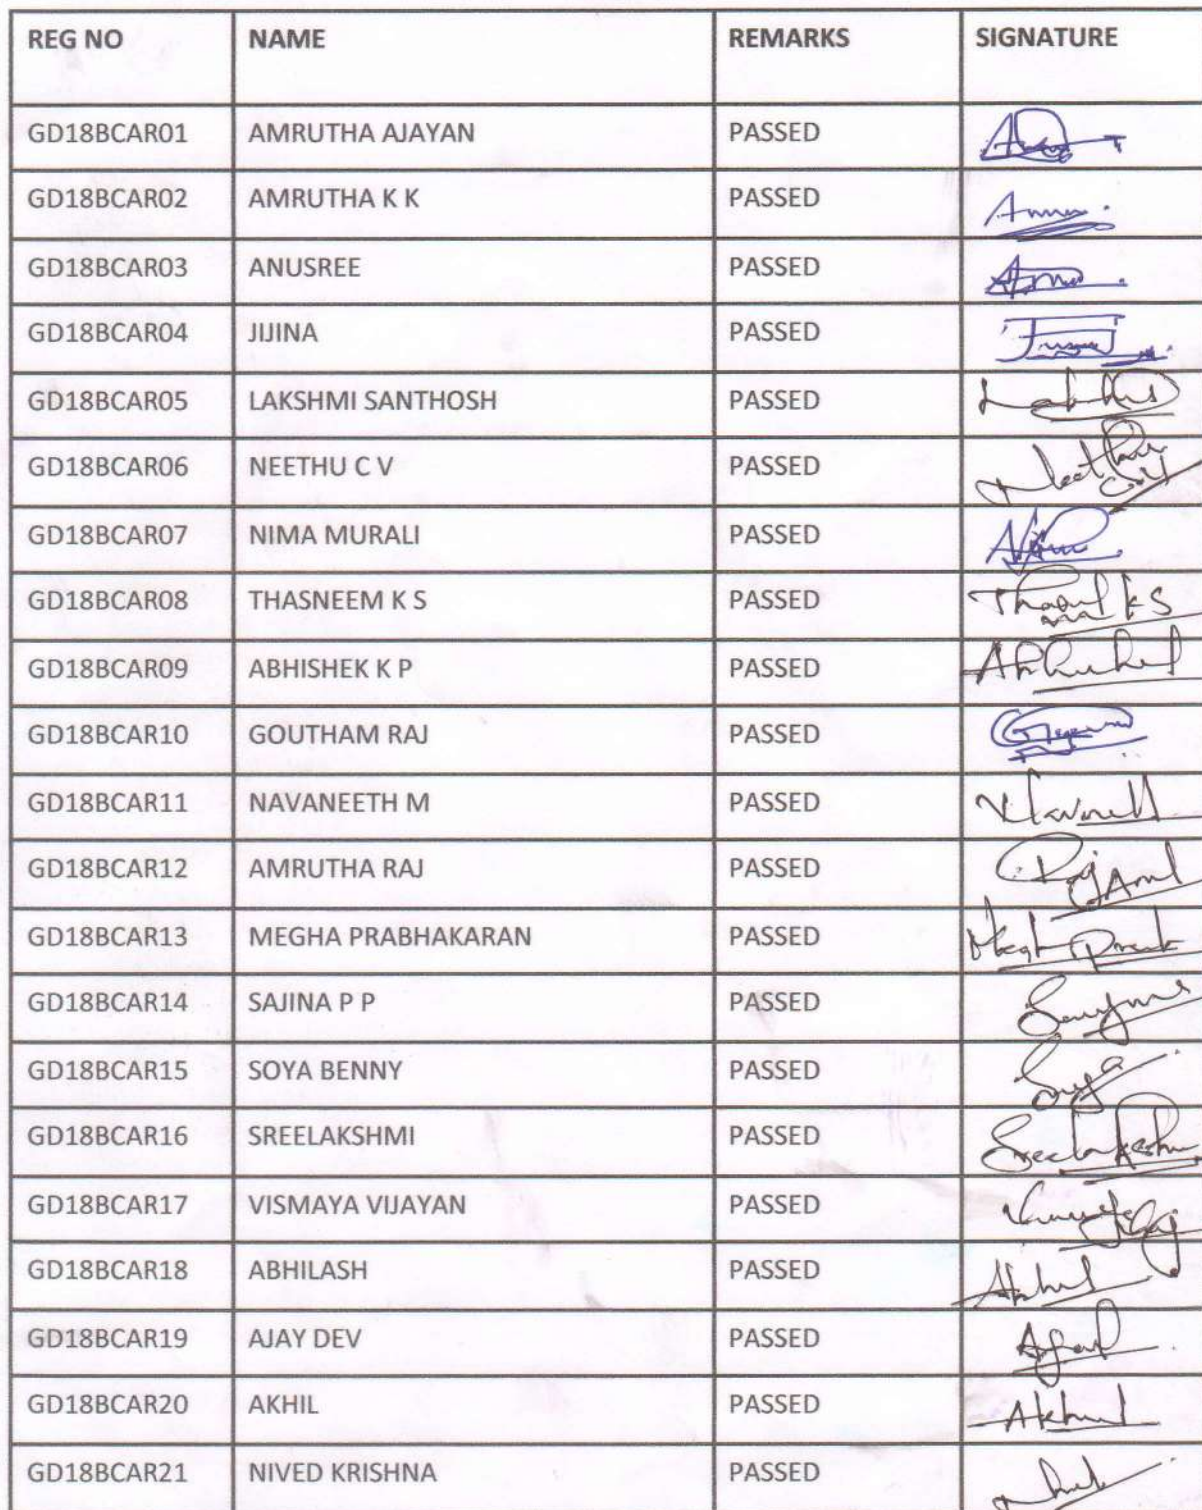 REG NO NAME REMARKS SIGNATURE
GD18BCAR01 AMRUTHA AJAYAN PASSED
GD18BCAR02 AMRUTHA K K PASSED
GD18BCAR03 ANUSREE PASSED
GD18BCAR04 JIJINA PASSED
GD18BCAR05 LAKSHMI SANTHOSH PASSED
GD18BCAR06 NEETHU C V PASSED
GD18BCAR07 NIMA MURALI PASSED
GD18BCAR08 THASNEEM K S PASSED
GD18BCAR09 ABHISHEK K P PASSED
GD18BCAR10 GOUTHAM RAJ PASSED
GD18BCAR11 NAVANEETH M PASSED
GD18BCAR12 AMRUTHA RAJ PASSED
GD18BCAR13 MEGHA PRABHAKARAN PASSED
GD18BCAR14 SAJINA P P PASSED
GD18BCAR15 SOYA BENNY PASSED
GD18BCAR16 SREELAKSHMI PASSED
GD18BCAR17 VISMAYA VIJAYAN PASSED
GD18BCAR18 ABHILASH PASSED
GD18BCAR19 AJAY DEV PASSED
GD18BCAR20 AKHIL PASSED
GD18BCAR21 NIVED KRISHNA PASSED